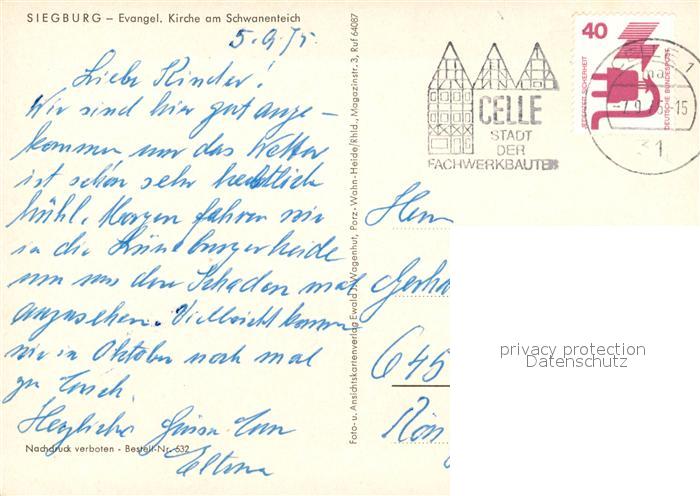 SIEGBURG – Evangel. Kirche am Schwanenteich
5.9.75
Liebe Kinder!
Wir sind hier gut ange-
kommen nur das Wetter
ist schon sehr herbstlich
kühl. Morgen fahren wir
in die Lüneburgerheide
um uns den Schaden mal
anzusehen. Vielleicht kommen
wir in Oktober noch mal
zu Euch.
Herzliche Grüsse Eure
Eltern
Nachdruck verboten - Bestell-Nr. 632
Foto- u. Ansichtskartenverlag Ewald J. Wagenhut, Porz-Wahn-Heide/Rhld., Magazinstr. 3, Ruf 64087
CELLE
STADT
DER
FACHWERKBAUTEN
40
JEDERZEIT SICHERHEIT
DEUTSCHE BUNDESPOST
-15
31
Herrn
Gerha
645
privacy protection
Datenschutz